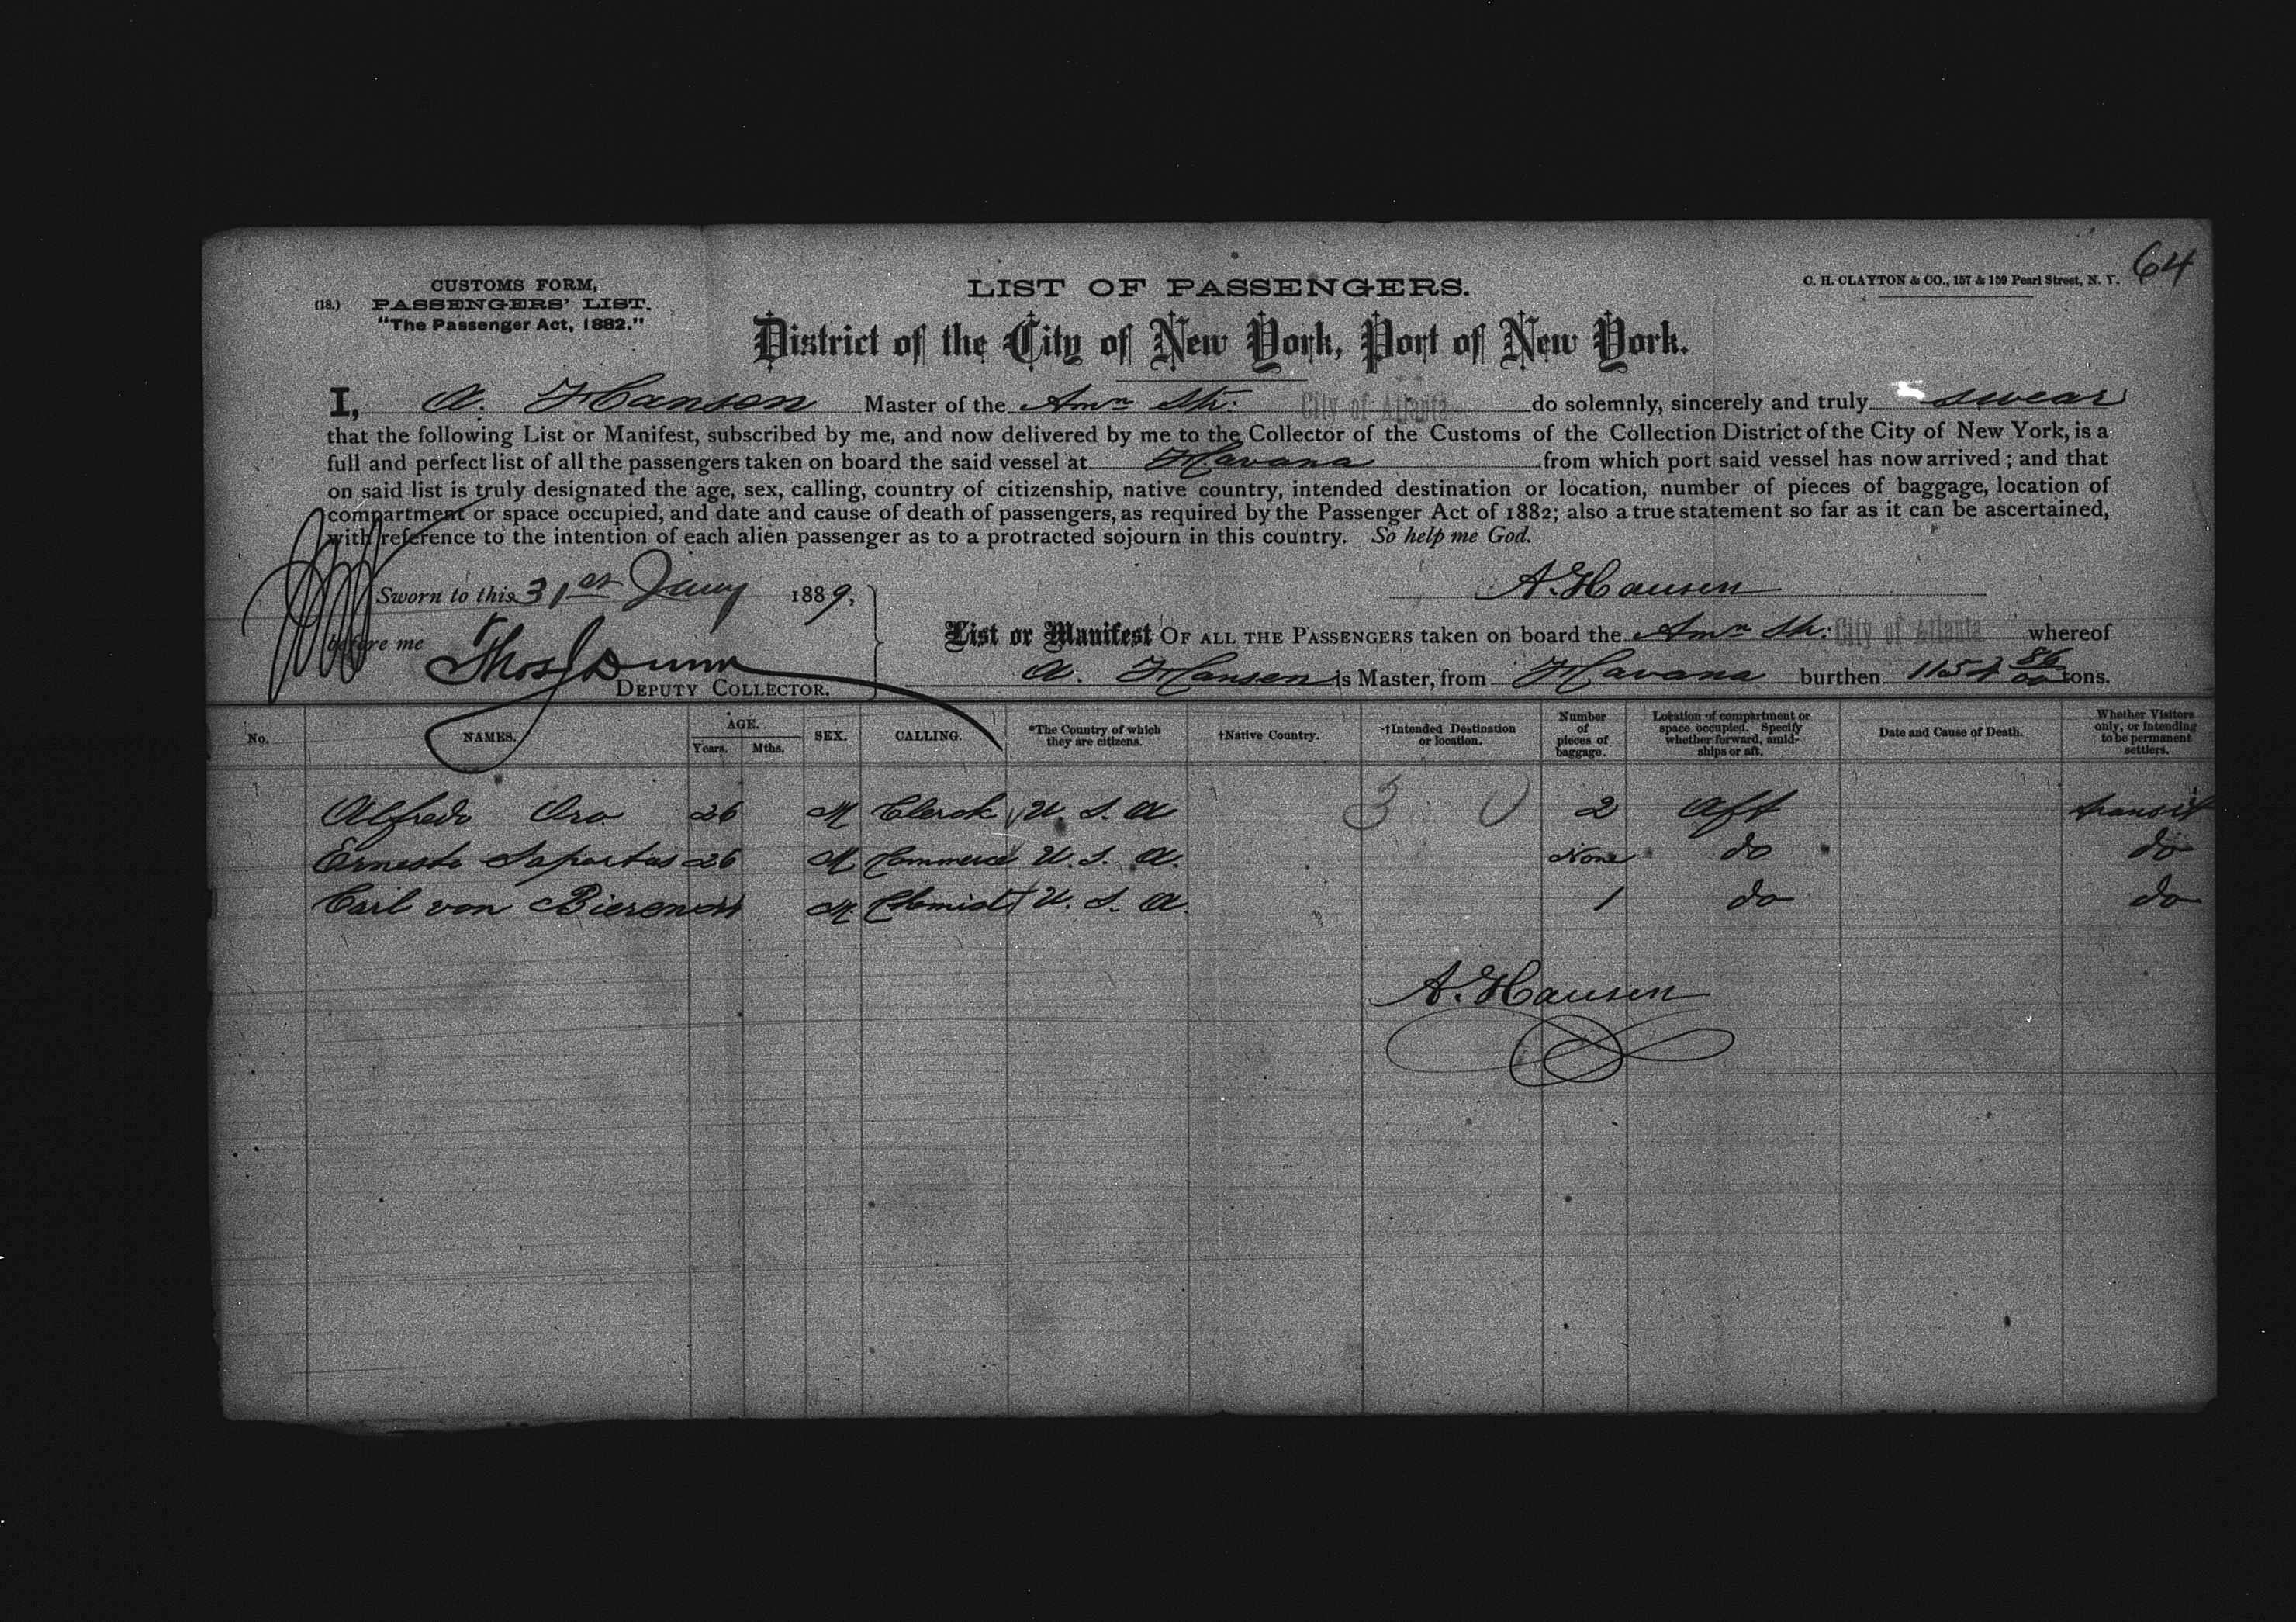 64
CUSTOMS FORM,
(18.) PASSENGERS' LIST.
"The Passenger Act, 1882."
LIST OF PASSENGERS.
C. H. CLAYTON & CO., 157 & 159 Pearl Street, N. Y.
District of the City of New York, Port of New York.
I, A. Hansen Master of the Amn Str: City of Atlanta do solemnly, sincerely and truly swear
that the following List or Manifest, subscribed by me, and now delivered by me to the Collector of the Customs of the Collection District of the City of New York, is a
full and perfect list of all the passengers taken on board the said vessel at Havana from which port said vessel has now arrived; and that
on said list is truly designated the age, sex, calling, country of citizenship, native country, intended destination or location, number of pieces of baggage, location of
compartment or space occupied, and date and cause of death of passengers, as required by the Passenger Act of 1882; also a true statement so far as it can be ascertained,
with reference to the intention of each alien passenger as to a protracted sojourn in this country. So help me God.
Sworn to this 31st Jany 1889, A. Hansen
before me Thos J Dunn
DEPUTY COLLECTOR.
List or Manifest OF ALL THE PASSENGERS taken on board the Amn Str: City of Atlanta whereof
A. Hansen is Master, from Havana burthen tons.
No. NAMES. AGE. Years. Mths. SEX. CALLING. *The Country of which they are citizens. †Native Country. †Intended Destination or location. Number of pieces of baggage. Location of compartment or space occupied. Specify whether forward, amidships or aft. Date and Cause of Death. Whether Visitors only, or intending to be permanent settlers.
Alfredo Oro 26 M Clerk U. S. A 3 0 2 Aft transit
Ernesto Saportas 26 M Commerce U. S. A. None do do
Carl von M Chemist U. S. A. 1 do do
A. Hansen